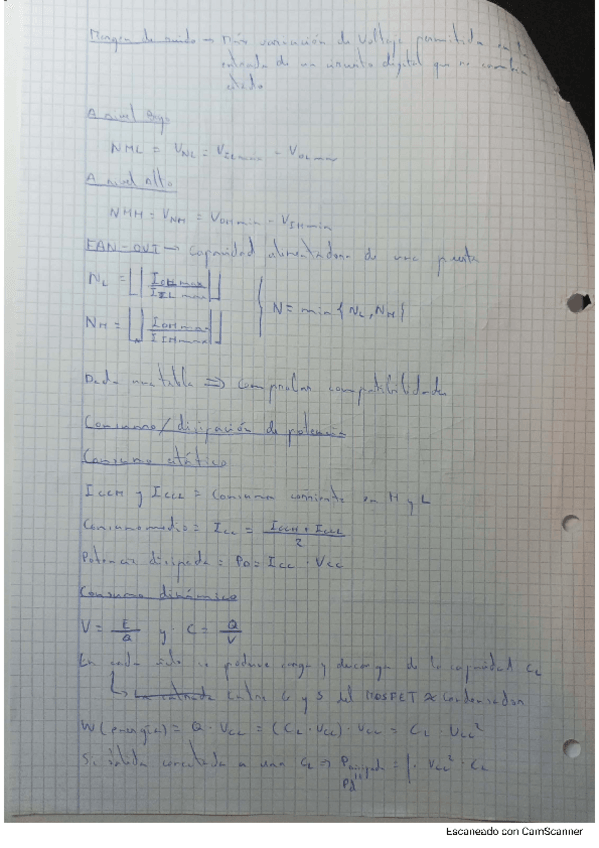 Margen de ruido → Máx variación de Voltaje permitida en la
entrada de un circuito digital que no cambia
estado
A nivel Bajo
NML = VNL = VILmax - VOLmax
A nivel Alto
NMH = VNH = VOHmin - VIHmin
FAN-OUT → Capacidad alimentadora de una puerta
NL = ⌊ IOLmax / IILmax ⌋
N = min { NL, NH }
NH = ⌊ IOHmax / IIHmax ⌋
Dada una tabla ⇒ comprobar compatibilidades
Consumo/disipación de potencia
Consumo estático
ICCH y ICCL = Consumen corriente en H y L
Consumo medio = ICC = ICCH + ICCL / 2
Potencia disipada = PD = ICC · VCC
Consumo dinámico
V = E / Q y C = Q / V
En cada ciclo se produce carga y descarga de la capacidad CL
↳ entre G y S del MOSFET ≈ Condensador
W (energía) = Q · VCC = (CL · VCC) · VCC = CL · VCC²
Si salida conectada a una CL ⇒ = f · VCC² · CL
Pd
Escaneado con CamScanner